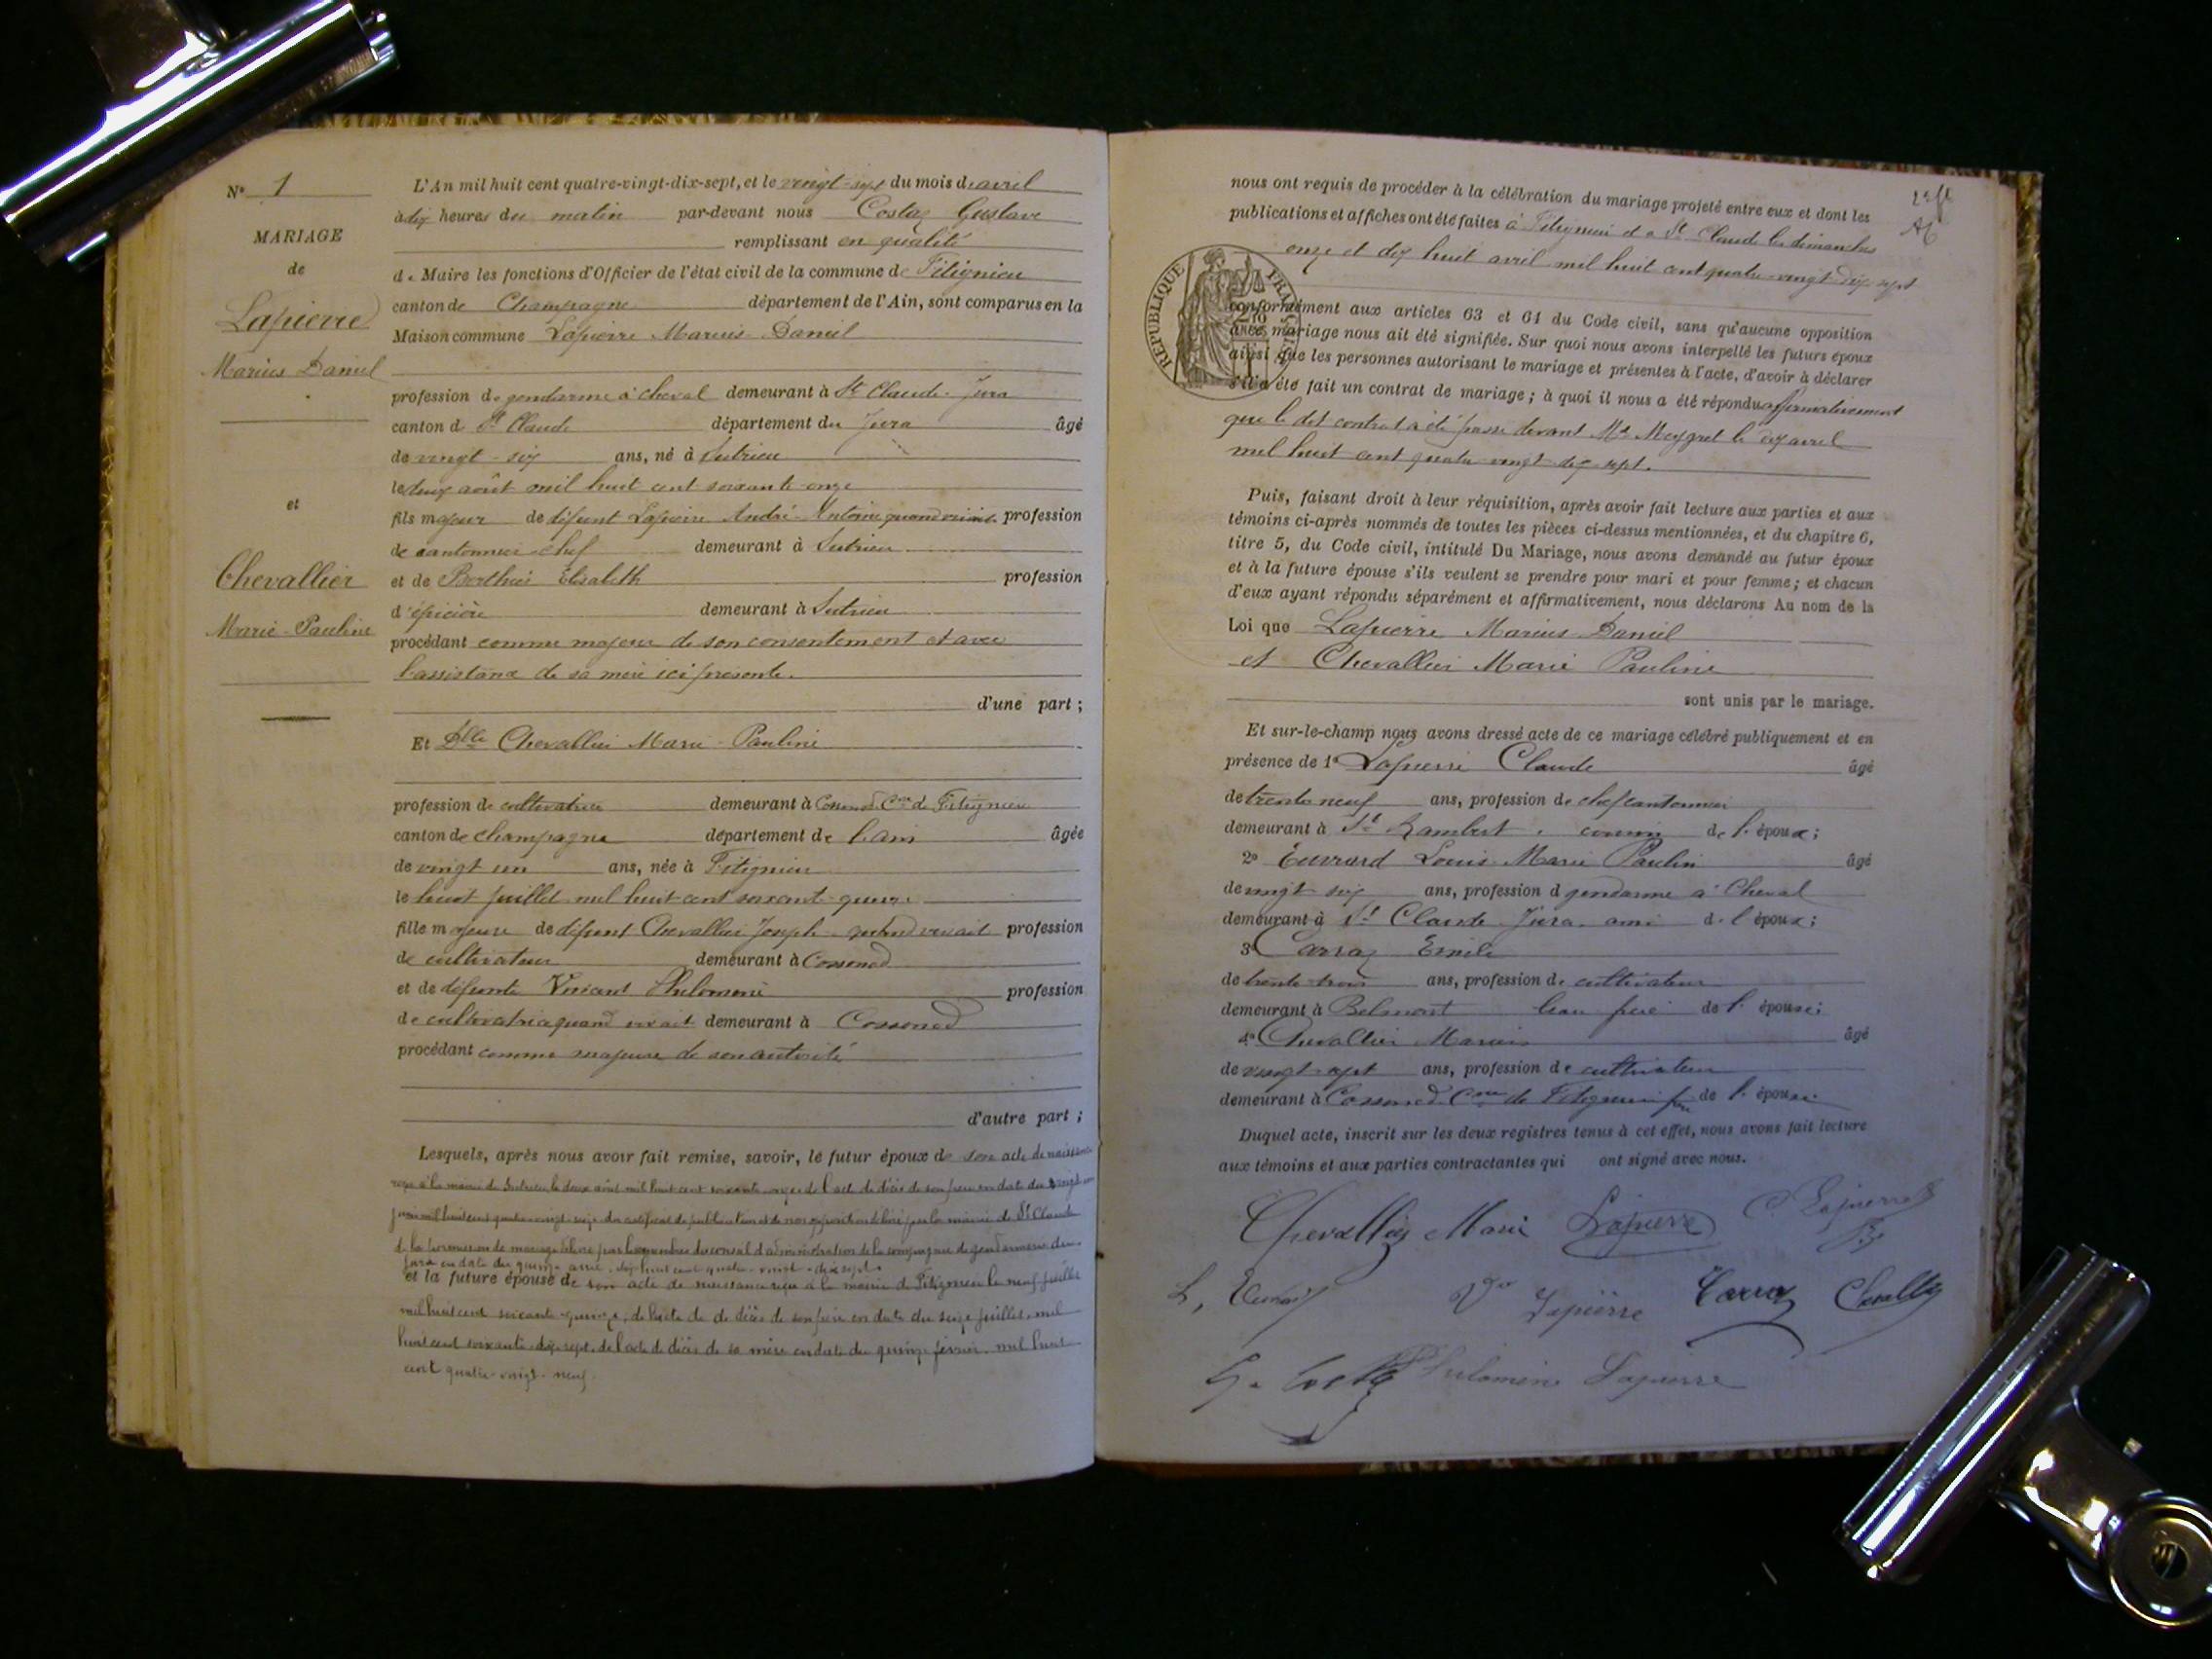 Nº 1
MARIAGE
de
Lapierre
Marius Daniel
et
Chevallier
Marie-Pauline
L'An mil huit cent quatre-vingt-dix-sept, et le vingt-sept du mois d'avril
à dix heures du matin par-devant nous Costaz Gustave
remplissant en qualité
de Maire les fonctions d'Officier de l'état civil de la commune de Fitignieu
canton de Champagne département de l'Ain, sont comparus en la
Maison commune Lapierre Marius-Daniel
profession de gendarme à cheval demeurant à St Claude-Jura
canton d St Claude département du Jura âgé
de vingt-six ans, né à Sutrieu
le deux août mil huit cent soixante onze
fils majeur de défunt Lapierre André-Antoine quand vivait profession
de cantonnier-chef demeurant à Sutrieu
et de Berthier Élisabeth profession
d'épicière demeurant à Sutrieu
procédant comme majeur de son consentement et avec
l'assistance de sa mère ici présente.
d'une part ;
Et Dlle Chevallier Marie-Pauline
profession de cultivatrice demeurant à Cossonod Cne de Fitignieu
canton de champagne département de l'ain âgée
de vingt un ans, née à Fitignieu
le huit juillet mil huit cent soixante-quinze
fille majeure de défunt Chevallier Joseph quand vivait profession
de cultivateur demeurant à Cossonod
et de défunte Vincent Philomène profession
de cultivatrice quand vivait demeurant à Cossonod
procédant comme majeure de son autorité
d'autre part ;
Lesquels, après nous avoir fait remise, savoir, le futur époux de son acte de naissance
reçu à la mairie de Sutrieu le deux août mil huit cent soixante-onze de l'acte de décès de son père en date du vingt-un
juin mil huit cent quatre-vingt-seize du certificat de publication et de non opposition délivré par la mairie de St Claude
de la permission de mariage délivré par les membres du conseil d'administration de la compagnie de gendarmerie du
Jura en date du quinze avril mil huit cent quatre-vingt-dix sept
et la future épouse de son acte de naissance reçu à la mairie de Fitignieu le neuf juillet
mil huit cent soixante-quinze, de l'acte de de décès de son père en date du seize juillet mil
huit cent soixante dix sept, de l'acte de décès de sa mère en date du quinze février mil huit
cent quatre-vingt-neuf
nous ont requis de procéder à la célébration du mariage projeté entre eux et dont les
publications et affiches ont été faites à Fitignieu et à St Claude les dimanches
onze et dix huit avril mil huit cent quatre-vingt-dix-sept
RÉPUBLIQUE FRANÇAISE
conformément aux articles 63 et 64 du Code civil, sans qu'aucune opposition
audit mariage nous ait été signifiée. Sur quoi nous avons interpellé les futurs époux
ainsi que les personnes autorisant le mariage et présentes à l'acte, d'avoir à déclarer
s'il a été fait un contrat de mariage ; à quoi il nous a été répondu affirmativement
que le dit contrat a été passé devant Me Meygret le dix avril
mil huit cent quatre vingt dix-sept.
Puis, faisant droit à leur réquisition, après avoir fait lecture aux parties et aux
témoins ci-après nommés de toutes les pièces ci-dessus mentionnées, et du chapitre 6,
titre 5, du Code civil, intitulé Du Mariage, nous avons demandé au futur époux
et à la future épouse s'ils veulent se prendre pour mari et pour femme ; et chacun
d'eux ayant répondu séparément et affirmativement, nous déclarons Au nom de la
Loi que Lapierre Marius Daniel
et Chevallier Marie Pauline
sont unis par le mariage.
Et sur-le-champ nous avons dressé acte de ce mariage célébré publiquement et en
présence de 1º Lapierre Claude âgé
de trente neuf ans, profession de chef cantonnier
demeurant à St Rambert, cousin de l'époux ;
2º Euvrard Louis Marie Paulin âgé
de vingt-six ans, profession d gendarme à Cheval
demeurant à St Claude-Jura ami de l'époux ;
3º Carraz Emile
de trente-trois ans, profession de cultivateur
demeurant à Belmont beau frère de l'épouse ;
4º Chevallier Marius âgé
de vingt-sept ans, profession de cultivateur
demeurant à Cossonod Cne de Fitignieu frère de l'épouse
Duquel acte, inscrit sur les deux registres tenus à cet effet, nous avons fait lecture
aux témoins et aux parties contractantes qui ont signé avec nous.
Chevallier Marie Lapierre C. Lapierre
L, Euvrard Vve Lapierre Carraz Chevallier
G. Costaz Philomène Lapierre